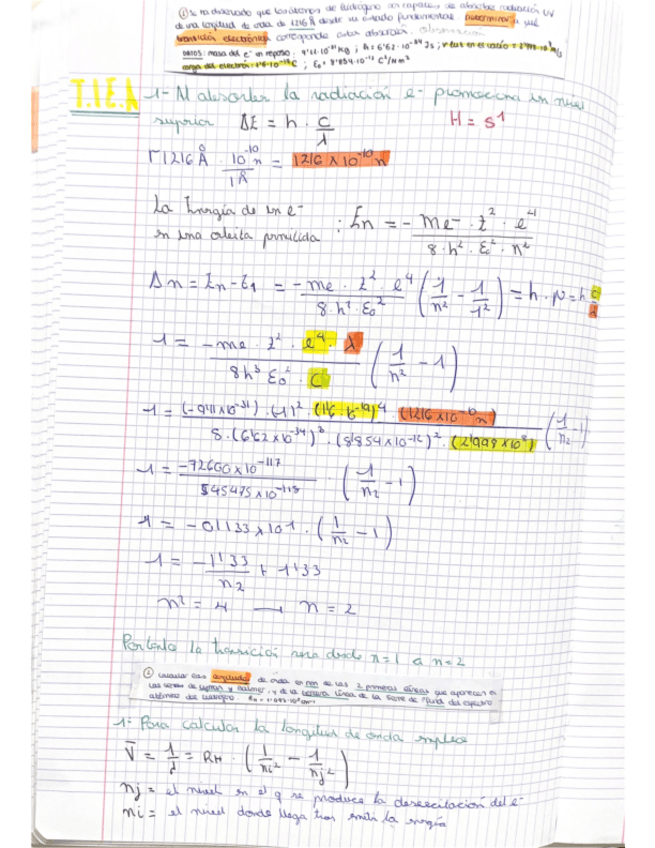 ① Se ha observado que los átomos de hidrógeno son capaces de absorber radiación UV
de una longitud de onda de 1216 Å desde su estado fundamental. Determinar a qué
transición electrónica corresponde esta absorción.
DATOS: masa del e⁻ en reposo: 9'11·10⁻³¹ Kg ; h = 6'62·10⁻³⁴ Js ; v luz en el vacío = 2'998·10⁸ m/s
carga del electrón: 1'6·10⁻¹⁹ C ; ε₀ = 8'854·10⁻¹² C²/Nm²
T.I.E.A
1- Al absorber la radiación e⁻ promociona un nivel
superior ΔE = h · c/λ H = s¹
1216 Å · 10⁻¹⁰ m / 1 Å = 1216 × 10⁻¹⁰ m
La Energía de un e⁻
en una orbita permitida : En = - me⁻ · z² · e⁴ / 8 · h² · ε₀² · n²
Δn = En - E1 = -me · z² · e⁴ / 8 · h² · ε₀² (1/n² - 1/1²) = h · ν = h c/λ
1 = -me · z² · e⁴ · λ / 8h³ ε₀² · C (1/n² - 1)
1 = (-9'11×10⁻³¹) · (1)² · (1'6·10⁻¹⁹)⁴ (1216×10⁻¹⁰) / 8 · (6'62×10⁻³⁴)³ · (8'854×10⁻¹²)² · (2'998×10⁸) (1/n2 - 1)
1 = -72600×10⁻¹¹⁷ / 545475×10⁻¹¹⁸ · (1/n2 - 1)
1 = -0'1133×10¹ · (1/n2 - 1)
1 = -1'33/n2 + 1'33
n² = 4 → n = 2
Por tanto la transición sera desde n=1 a n=2
② Calcular las longitudes de onda en nm de las 2 primeras líneas que aparecen en
las series de Lyman y Balmer, y de la tercera línea de la serie de Pfund del espectro
atómico del hidrógeno.
1- Para calcular la longitud de onda empleo
V̄ = 1/λ = RH · (1/ni² - 1/nj²)
nj = el nivel en el q se produce la desexcitación del e⁻
ni = el nivel donde llega tras emitir la energía